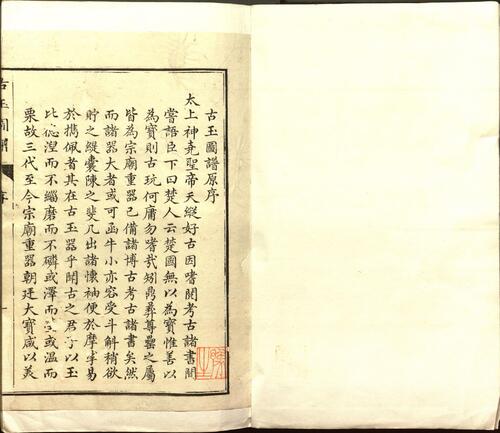 古玉圖譜原序
太上神堯聖帝天縱好古因嗜閱考古諸書間
嘗語臣下曰楚人云楚國無以為寶惟善以
為寶則古玩何庸勿嗜哉矧鼎彝尊罍之屬
皆為宗廟重器已備諸博古考古諸書矣然
而諸器大者或可函牛小亦容受斗斛稍欲
貯之緹囊陳之棐几出諸懷袖便於摩挲易
於携佩者其在古玉器乎聞古之君子以玉
比德涅而不緇磨而不磷或澤而 或溫而
栗故三代至今宗廟重器朝廷大寶咸以美
古玉圖譜
序
一